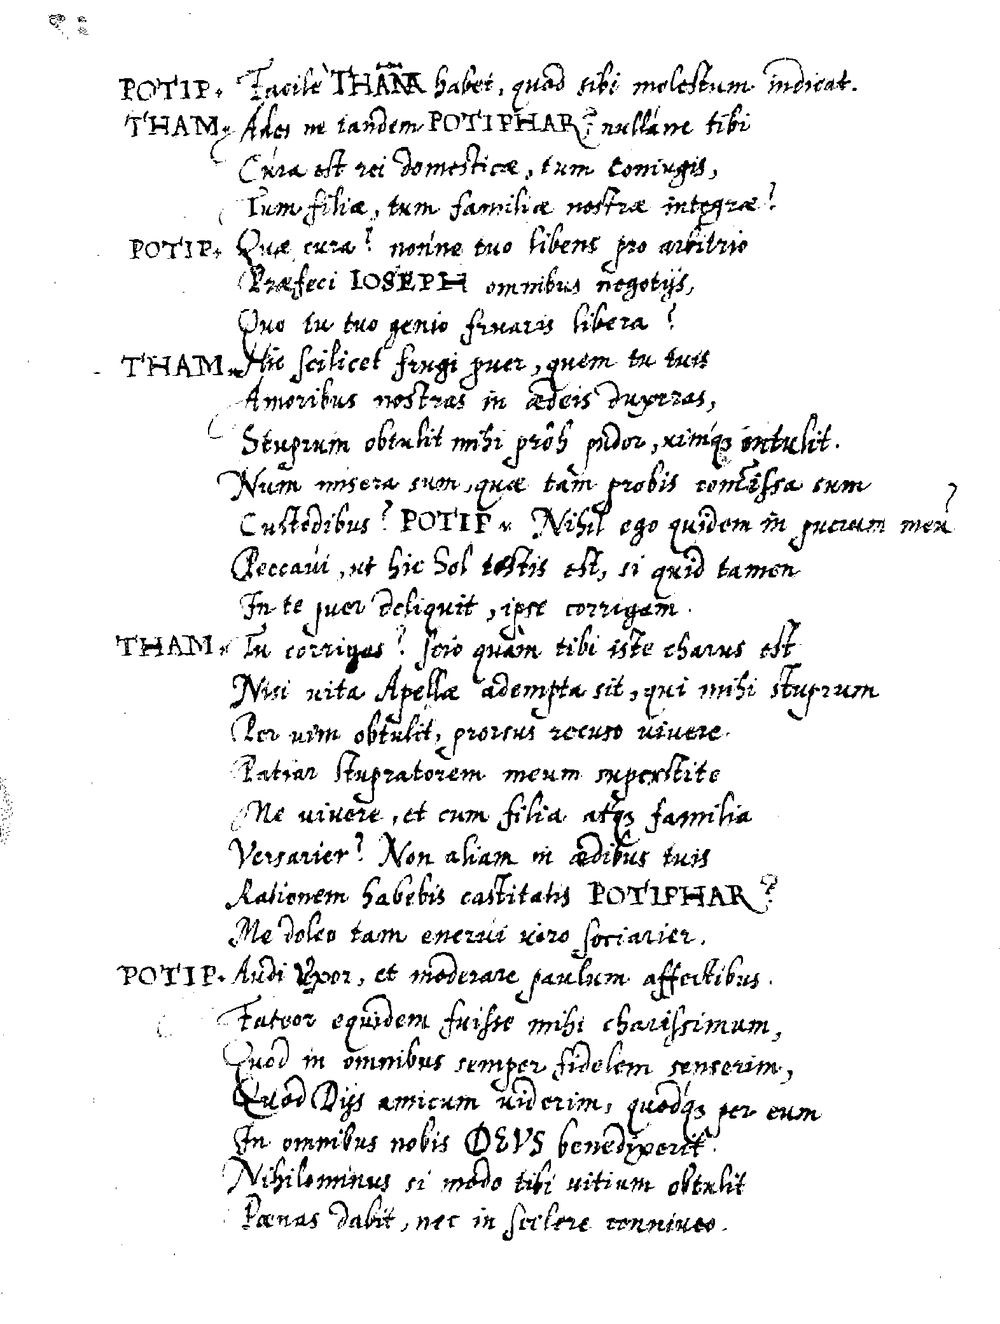 POTIP. Facilè THAMA habet, quod sibi molestum indicat.
THAM. Ades ne tandem POTIPHAR? nullane tibi
Cura est rei domesticæ, tum coniugis,
Tum filiæ, tum familiæ nostræ integræ?
POTIP. Quæ cura? nonne tuo libens pro arbitrio
Præfeci IOSEPH omnibus negotijs,
Quo tu tuo genio fruaris libera?
THAM. Hic scilicet frugi puer, quem tu tuis
Amoribus nostras in ædeis duxeras,
Stuprum obtulit mihi prôh pudor, uimq́ꝫ intulit.
Num misera sum, quæ tam probis comissa sum
Custodibus? POTIP. Nihil ego quidem in puerum meũ
Peccaui, ut hic Sol testis est, si quid tamen
In te puer deliquit, ipse corrigam.
THAM. Tu corrigas? scio quàm tibi iste charus est
Nisi uita Apellæ adempta sit, qui mihi stuprum
Per uim obtulit, prorsus recuso uiuere.
Patiar stupratorem meum superstite
Me uiuere, et cum filia atqꝫ familia
Versarier? Non aliam in ædibus tuis
Rationem habebis castitatis POTIPHAR?
Me doleo tam enerui uiro sociarier.
POTIP. Audi Vxor, et moderare paulum affectibus.
Fateor equidem fuisse mihi charissimum,
Quod in omnibus semper fidelem senserim,
Quod Dijs amicum uiderim, quodq́ꝫ per eum
In omnibus nobis DEVS benedixerit.
Nihilominus si modo tibi uitium obtulit
Pœnas dabit, nec in scelere conniueo.